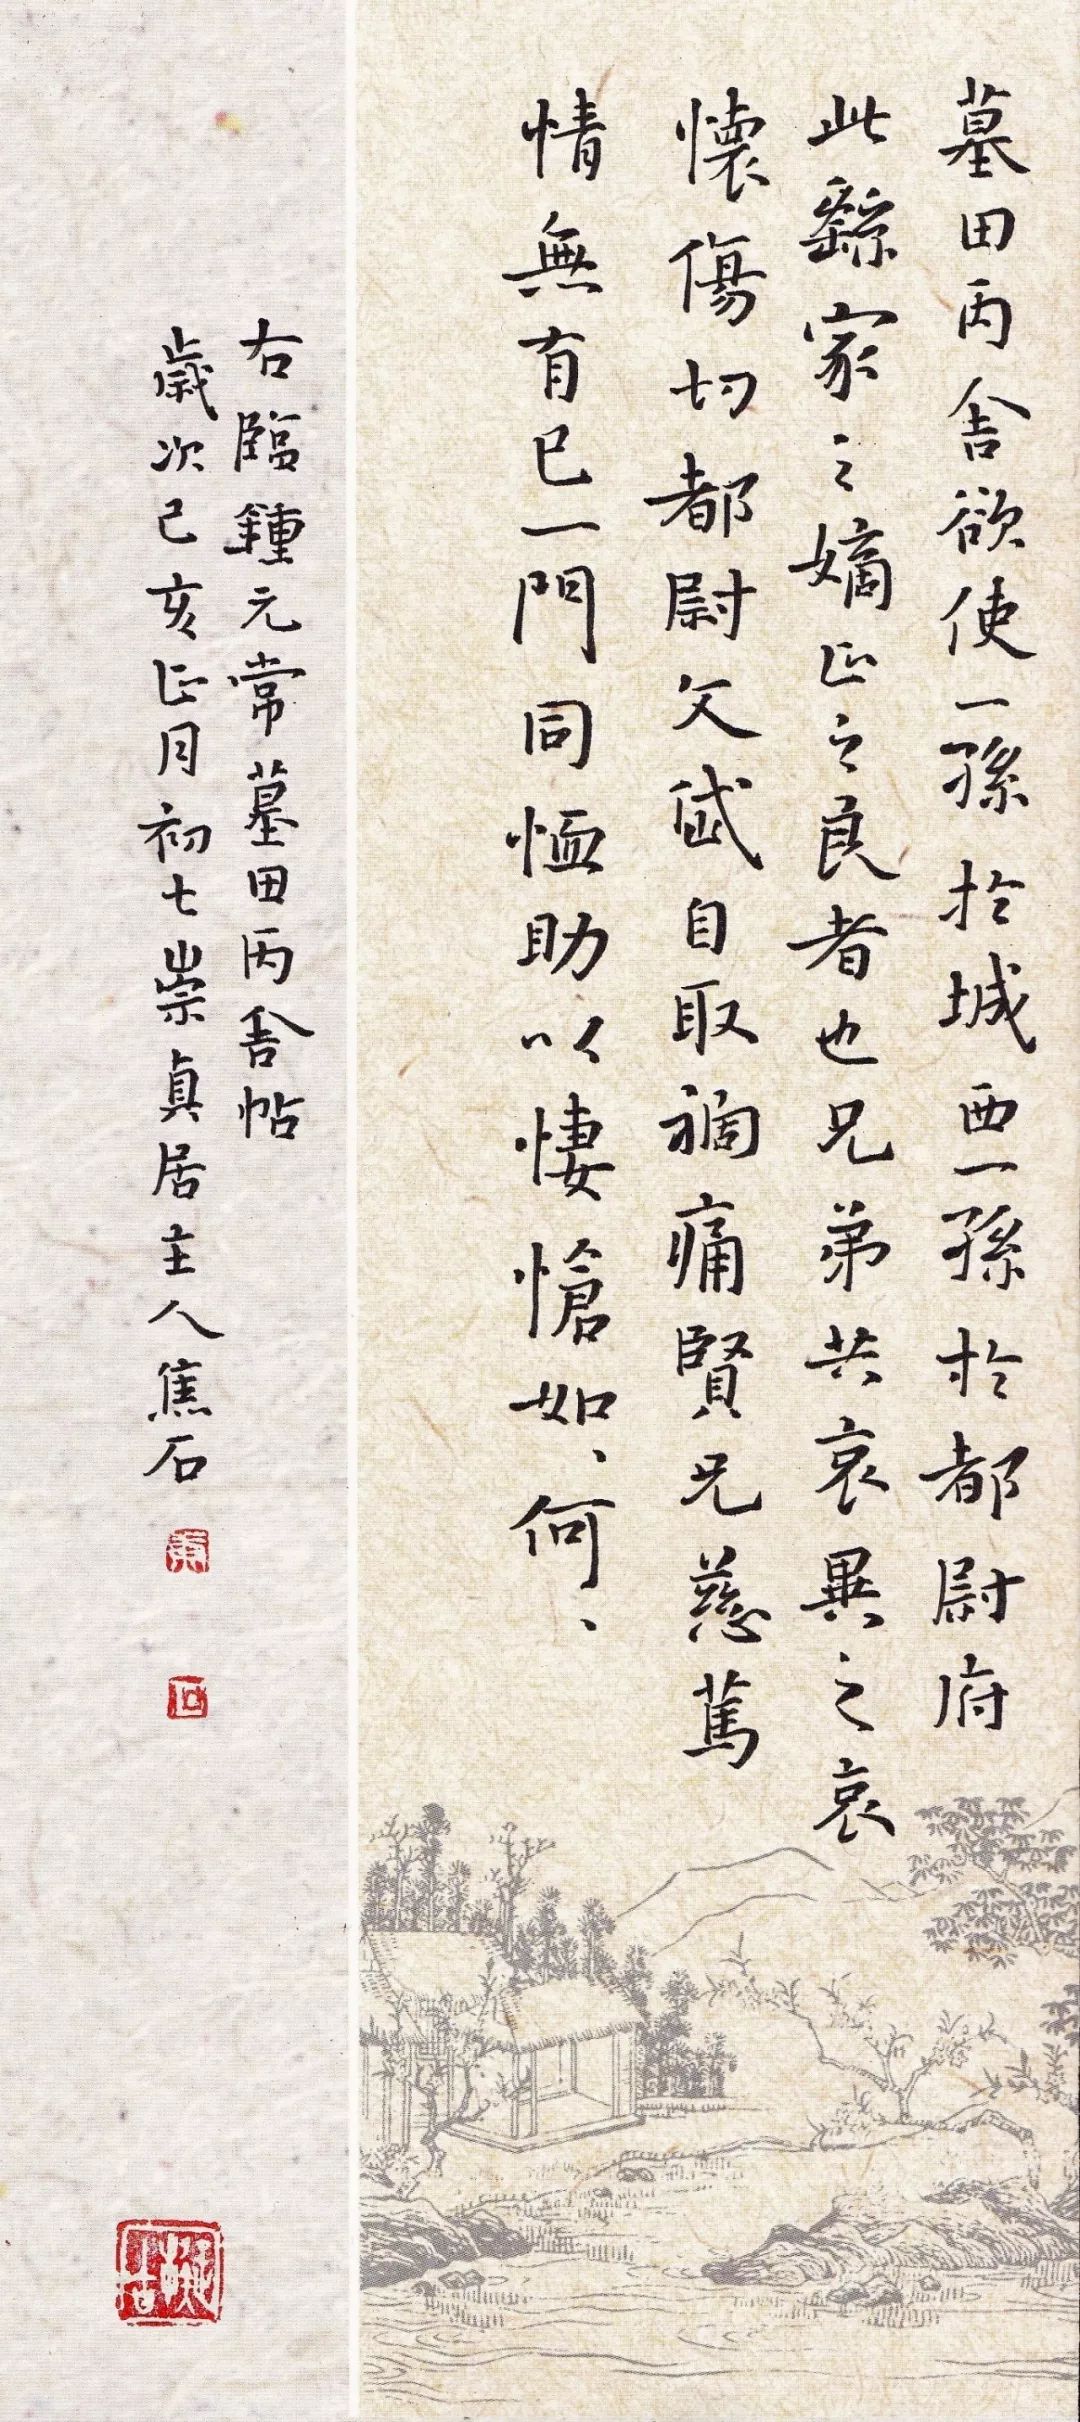 墓田丙舍欲使一孫於城西一孫於都尉府
此繇家之嫡正之良者也兄弟共哀異之哀
懷傷切都尉文岱自取禍痛賢兄慈篤
情無有已一門同恤助以悽愴如、何、
右臨鍾元常墓田丙舍帖
歲次己亥正月初七崇真居主人焦石
石